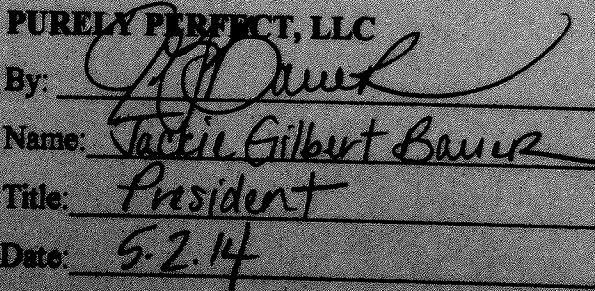 PURELY PERFECT, LLC
By: JG Bauer
Name: Jackie Gilbert Bauer
Title: President
Date: 5.2.14